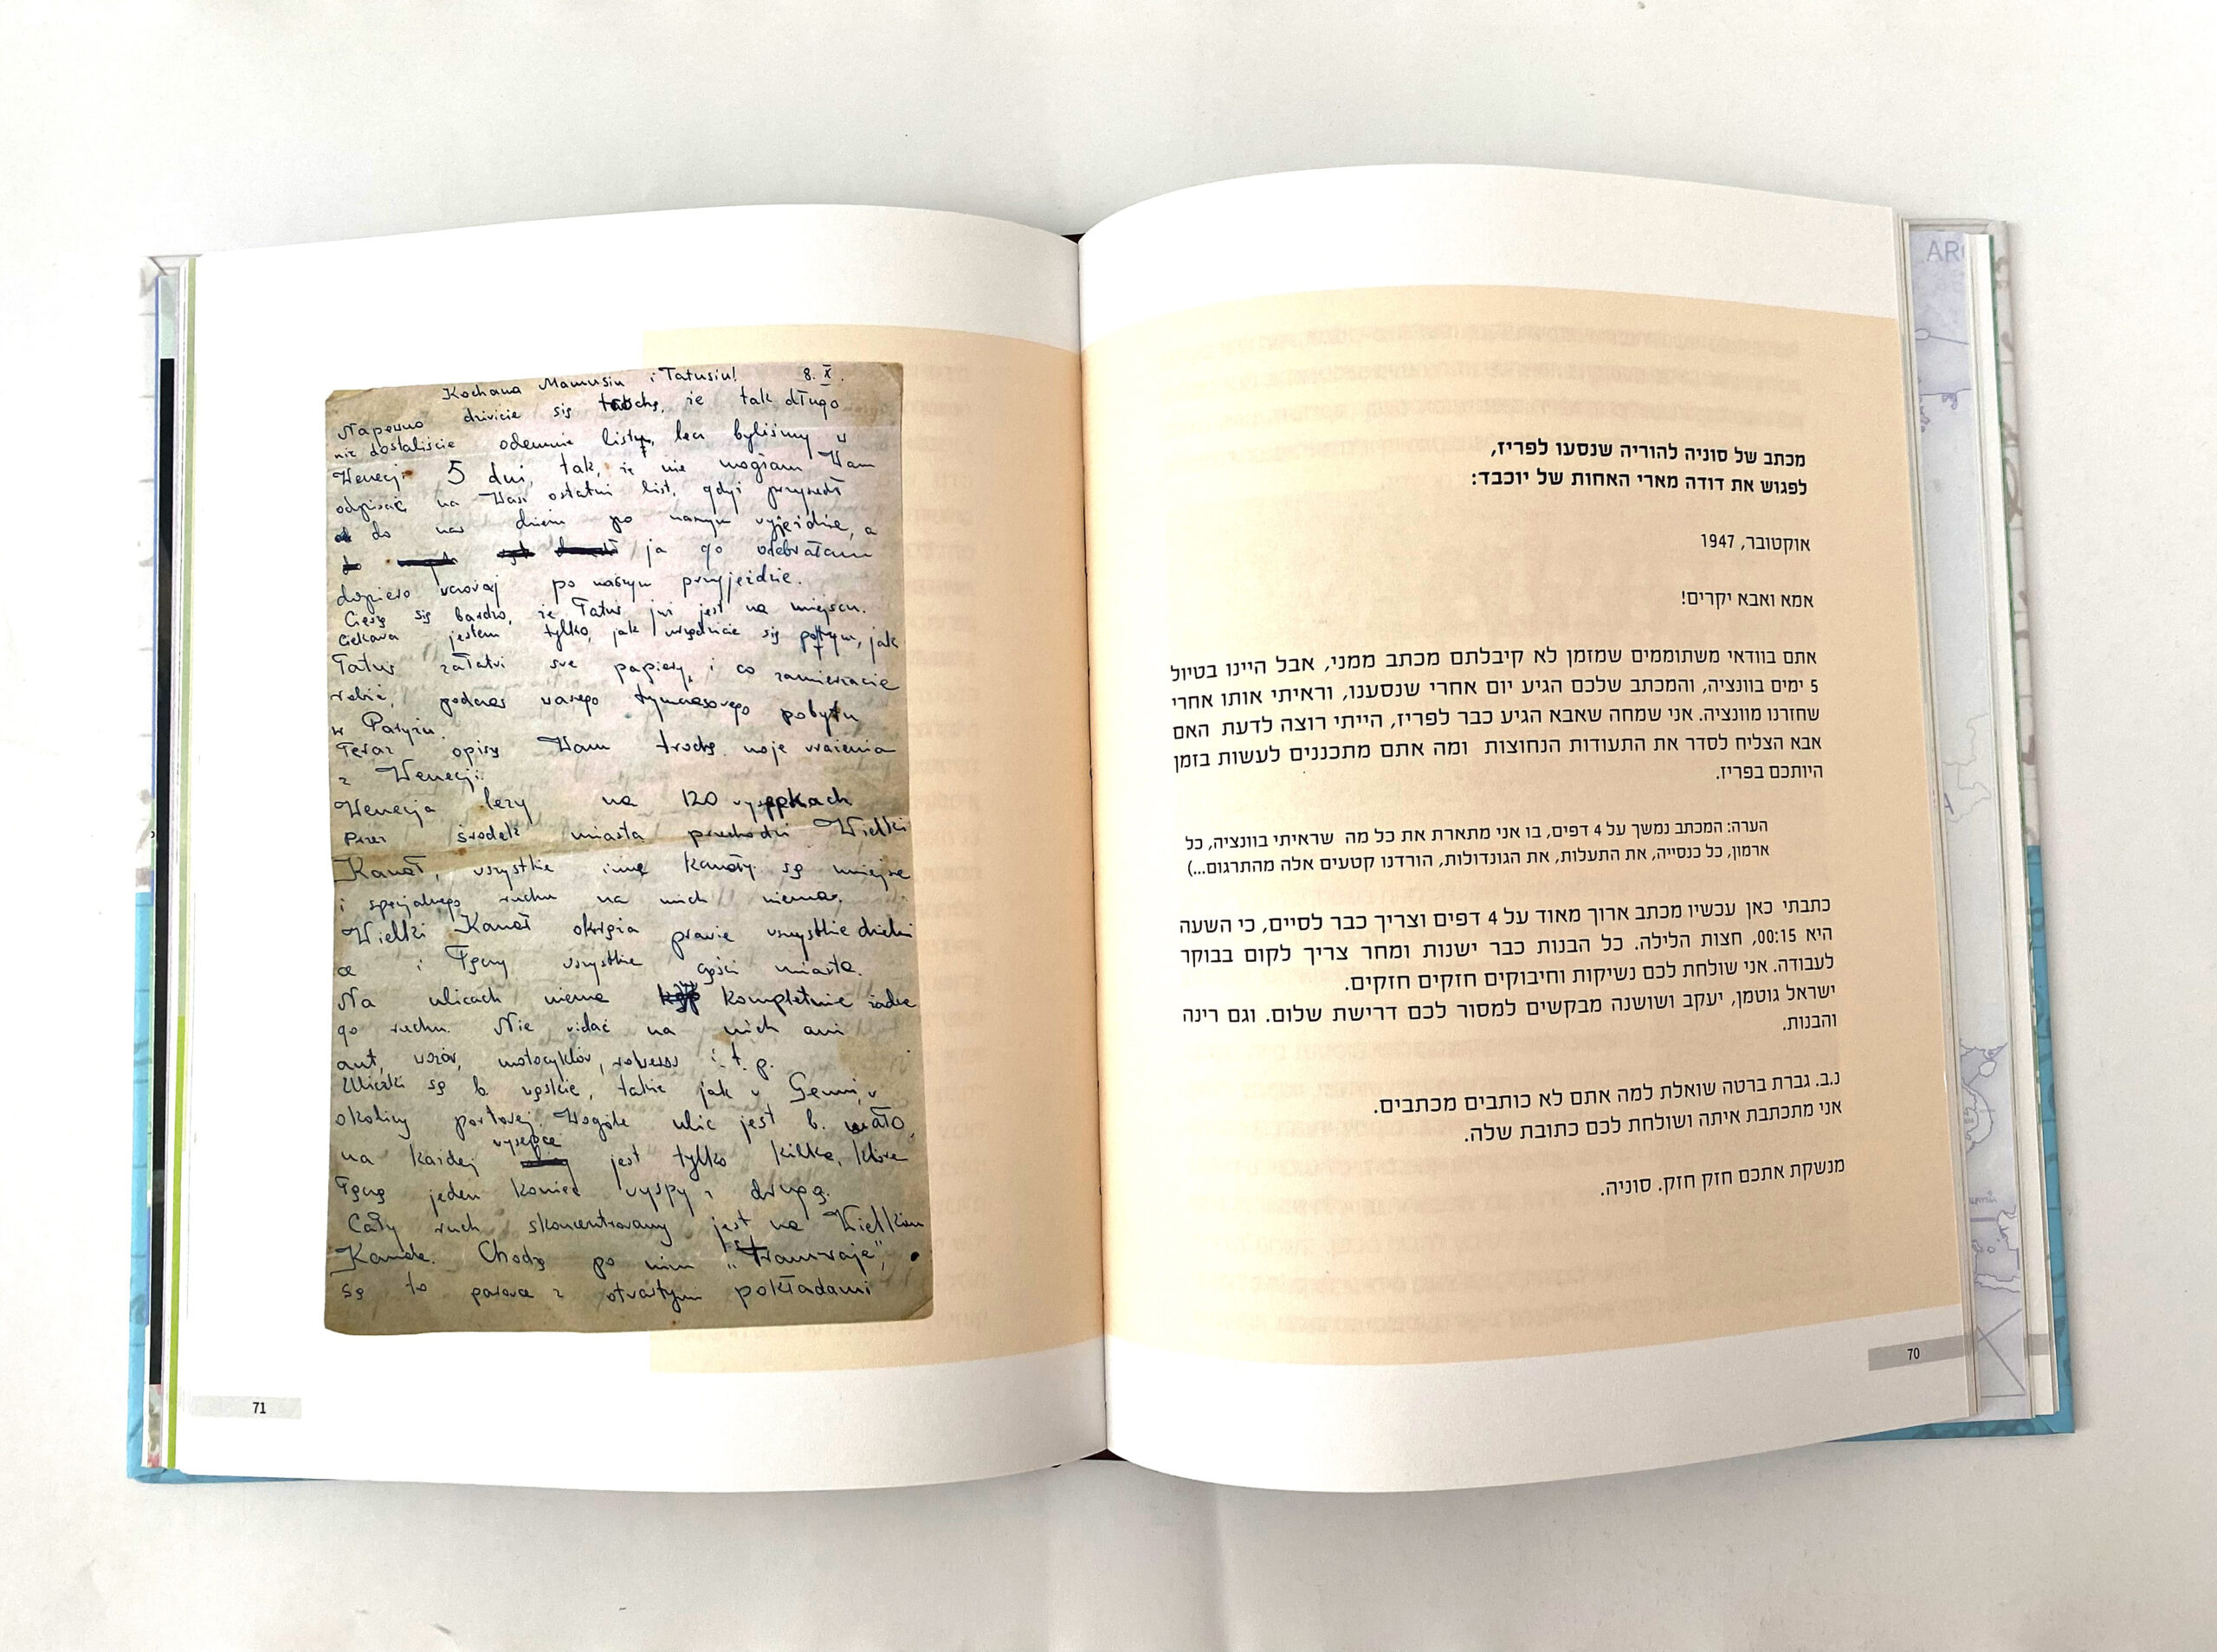 מכתב של סוניה להוריה שנסעו לפריז,
לפגוש את דודה מארי האחות של יוכבד:
אוקטובר, 1947
אמא ואבא יקרים!
אתם בוודאי משתוממים שמזמן לא קיבלתם מכתב ממני, אבל היינו בטיול
5 ימים בוונציה, והמכתב שלכם הגיע יום אחרי שנסענו, וראיתי אותו אחרי
שחזרנו מוונציה. אני שמחה שאבא הגיע כבר לפריז, הייתי רוצה לדעת האם
אבא הצליח לסדר את התעודות הנחוצות ומה אתם מתכננים לעשות בזמן
היותכם בפריז.
הערה: המכתב נמשך על 4 דפים, בו אני מתארת את כל מה שראיתי בוונציה, כל
ארמון, כל כנסייה, את התעלות, את הגונדולות, הורדנו קטעים אלה מהתרגום...)
כתבתי כאן עכשיו מכתב ארוך מאוד על 4 דפים וצריך כבר לסיים, כי השעה
היא 00:15, חצות הלילה. כל הבנות כבר ישנות ומחר צריך לקום בבוקר
לעבודה. אני שולחת לכם נשיקות וחיבוקים חזקים חזקים.
ישראל גוטמן, יעקב ושושנה מבקשים למסור לכם דרישת שלום. וגם רינה
והבנות.
נ.ב. גברת ברטה שואלת למה אתם לא כותבים מכתבים.
אני מתכתבת איתה ושולחת לכם כתובת שלה.
מנשקת אתכם חזק חזק. סוניה.
70
Kochana Mamusiu i Tatusiu! 8. X.
Napewno dziwicie się trochę, że tak długo
nie dostaliście odemnie listu, lecz byliśmy w
Wenecji 5 dni, tak, że nie mogłam Wam
odpisać na Wasz ostatni list, gdyż przyszedł
do nas dzień po naszym wyjeździe, a
ja go odebrałam
dopiero wczoraj po naszym przyjeździe.
Cieszę się bardzo, że Tatuś już jest na miejscu.
Ciekawa jestem tylko, jak urządzicie się potym, jak
Tatuś załatwi swe papiery, i co zamierzacie
robić, podczas waszego tymczasowego pobytu
w Paryżu.
Teraz opiszę Wam trochę moje wrażenia
z Wenecji.
Wenecja leży na 120 wysepkach
Przez środek miasta przechodzi Wielki
Kanał, wszystkie inne kanały są mniejsze
i specjalnego ruchu na nich niema.
Wielki Kanał okrąża prawie wszystkie dzielni
ce i łączy wszystkie części miasta.
Na ulicach niema kompletnie żadne
go ruchu. Nie widać na nich ani
aut, wozów, motocyklów, i.t.p.
Uliczki są b. wąskie, takie jak w Genui, w
okolicy portowej. Wogóle ulic jest b. mało,
na każdej wysepce jest tylko kilka, które
łączą jeden koniec wyspy z drugą.
Cały ruch skoncentrowany jest na Wielkim
Kanale. Chodzą po nim "Tramwaje",
są to parowce z otwartym pokładami
71